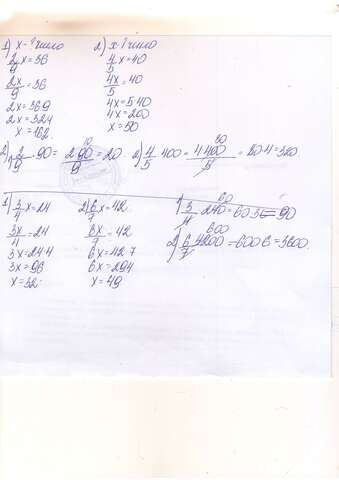 1) x-? число
2/9 x = 36
2x/9 = 36
2x = 36·9
2x = 324
x = 162.
2) x-? число
4/5 x = 40
4x/5 = 40
4x = 5·40
4x = 200
x = 50
2) 1) 2/9 · 90 = 2·90/9 = 20
10
2) 4/5 · 400 = 4·400/5 = 80·4 = 320.
80
1) 3/4 x = 24
3x/4 = 24
3x = 24·4
3x = 96
x = 32
2) 6/7 x = 42.
6x/7 = 42
6x = 42·7
6x = 294
x = 49
60
600
2) 6/7 4200 = 600·6 = 3600.